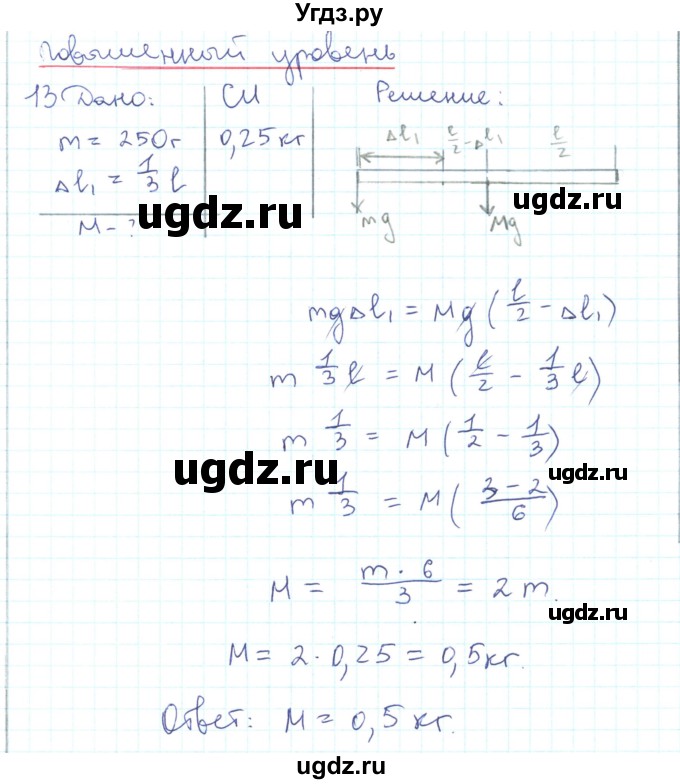 Угдз.ру
Повышенный уровень
13 Дано: СИ Решение:
m = 250г 0,25 кг
Δl₁ = 1/3 l
M - ?
Δl₁ l/2 - Δl₁ l/2
ugdz.ru
ugdz.ru
mg Mg
mgΔl₁ = Mg (l/2 - Δl₁)
m 1/3 l = M (l/2 - 1/3 l)
m 1/3 = M (1/2 - 1/3)
ugdz.ru
ugdz.ru
m 1/3 = M ( 3 - 2 / 6 )
M = m · 6 / 3 = 2 m.
ugdz.ru
M = 2 · 0,25 = 0,5 кг.
Ответ: M = 0,5 кг.
ugdz.ru